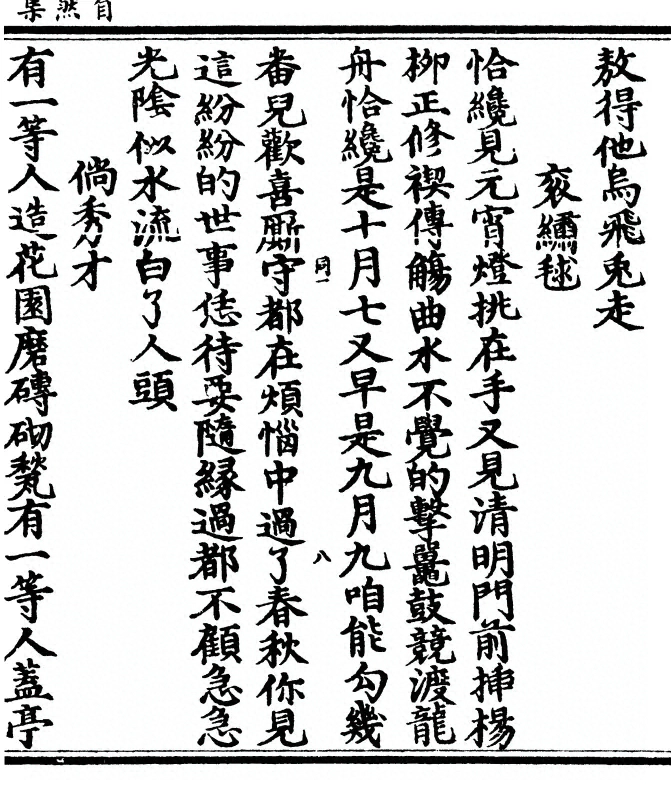 自然集
敖得他烏飛兔走
衮繡毬
恰纔見元宵燈挑在手又見清明門前揷楊
柳正修禊傳觴曲水不覺的擊鼉鼓競渡龍
舟恰纔是十月七又早是九月九咱能勾幾
同一 八
畨兒歡喜厮守都在煩惱中過了春秋你見
這紛紛的世事恁待要隨緣過都不顧急急
光陰似水流白了人頭
倘秀才
有一等人造花園磨磚砌甃有一等人蓋亭